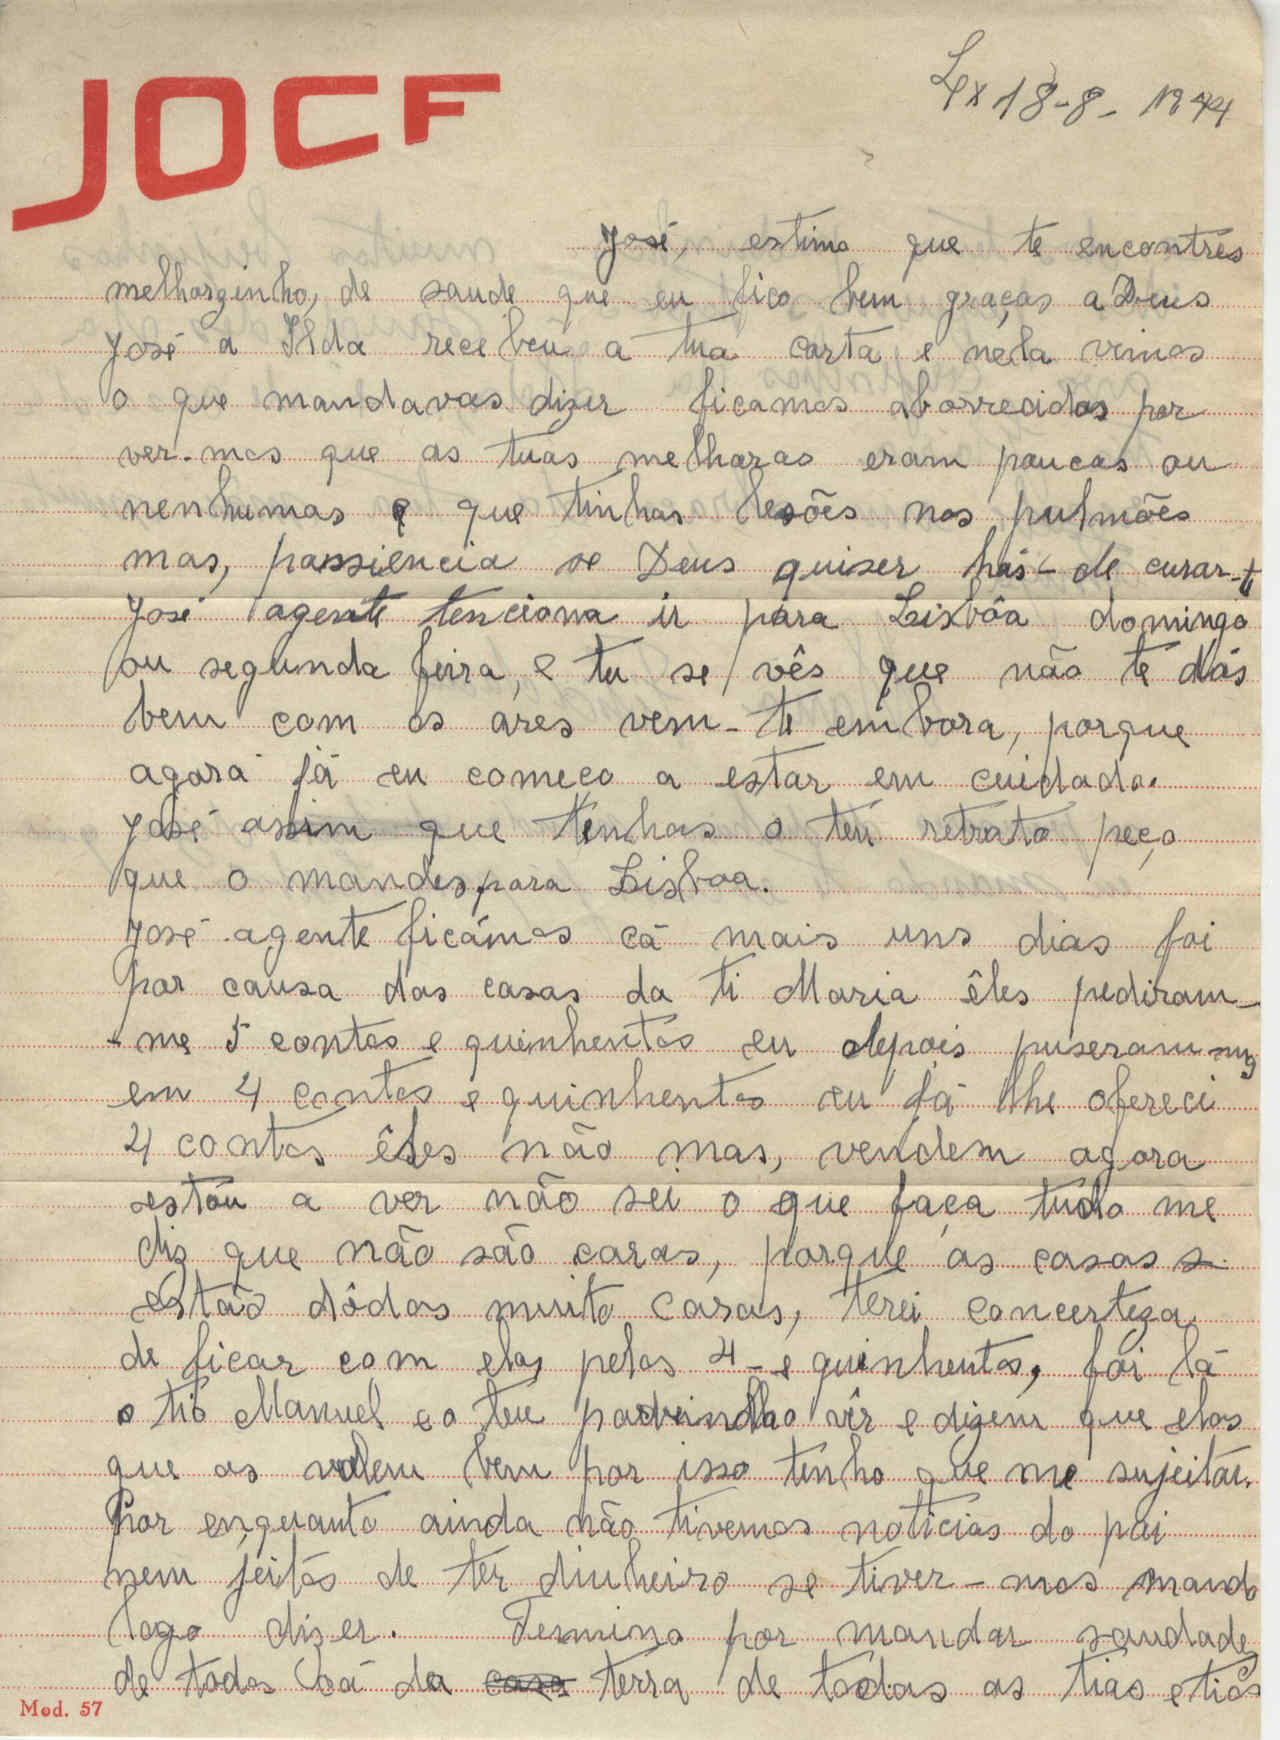 JOCF
Lx 18-8-1944
José, estimo que te encontres
melhorzinho, de saude que eu fico bem graças a Deus
José a Ilda recebeu a tua carta e nela vimos
o que mandavas dizer ficamos aborrecidas por
ver-mos que as tuas melharas eram poucas ou
nenhumas e que tinhas lesões nos pulmões
mas, passiencia se Deus quiser hás-de curar-te
José agente tenciona ir para Lisbôa domingo
ou segunda feira, e tu se vês que não te dás
bem com os ares vem-te embora, porque
agora já eu começo a estar em cuidado.
José assim que tenhas o teu retrato peço
que o mandes para Lisboa.
José agente ficámos cá mais uns dias foi
por causa das casas da ti Maria êles pediram-
-me 5 contos e quinhentos eu depois puseram-mas
em 4 contos e quinhentos eu já lhe ofereci
4 contos êles não mas, vendem agora
estou a ver não sei o que faça tudo me
diz que não são caras, porque as casas s
estão dôdas muito caras, terei concerteza
de ficar com elas pelos 4-e quinhentos, foi lá
o tio Manuel e o teu padrinho vêr e dizem que elas
que as valem bem por isso tenho que me sujeitar.
Por enquanto ainda não tivemos noticias do pai
nem jeitos de ter dinheiro se tiver-mos mando
logo dizer. Termino por mandar saudades
de todos cá da casa terra de todas as tias e tios
Mod. 57